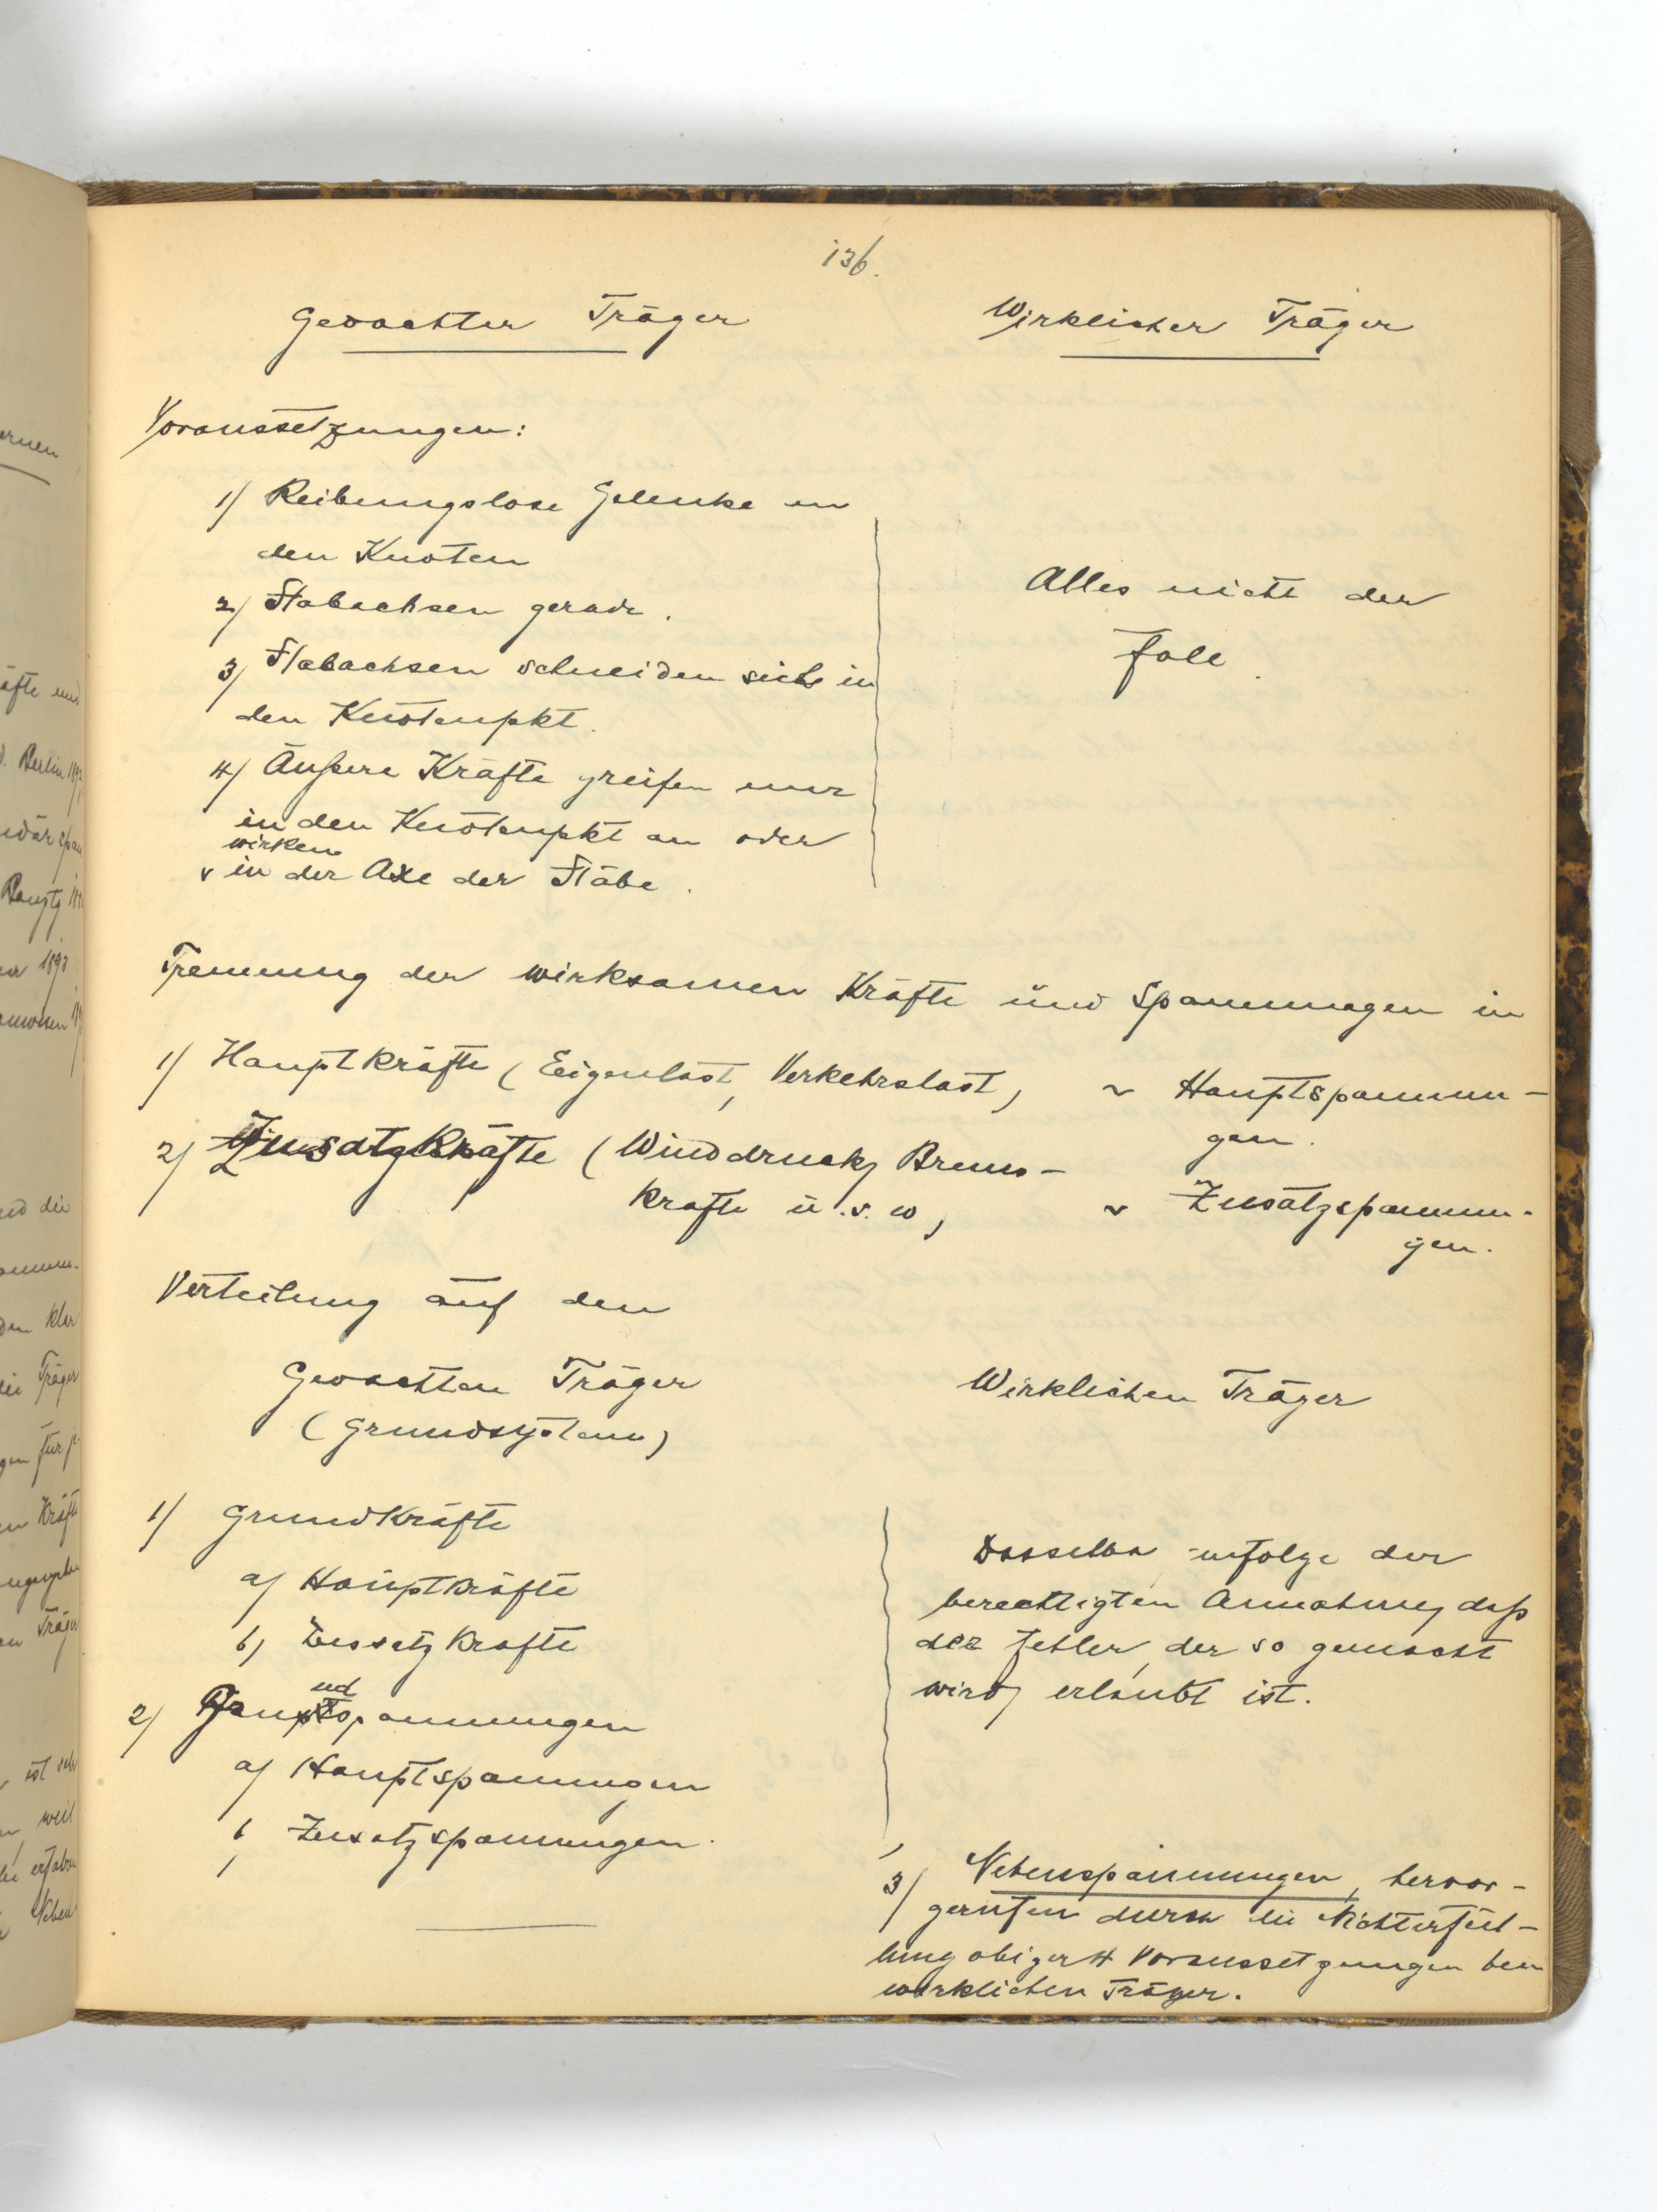 136.
Gedachter Träger
Wirklicher Träger
Voraussetzungen:
1) Reibungslose Gelenke in
den Knoten
2) Stabachsen gerade.
3) Stabachsen schneiden sich in
den Knotenpkt.
4) Äußere Kräfte greifen nur
in den Knotenpkt an oder
wirken
in der Axe der Stäbe.
Alles nicht der
Fall
Trennung der wirksamen Kräfte und Spannungen in
1) Hauptkräfte (Eigenlast, Verkehrslast) ~ Hauptspannun-
gen.
2) Zusatzkräfte (Winddruck, Brems-
kräfte u.s.w) ~ Zusatzspannun-
gen.
Verteilung auf den
Gedachten Träger
(Grundsystem)
Wirklichen Träger
1) Grundkräfte
a) Hauptkräfte
b) Zusatzkräfte
2) Grundspannungen
a) Hauptspannungen
b) Zusatzspannungen.
Dasselbe infolge der
berechtigten Annahme, daß
der Fehler, der so gemacht
wird, erlaubt ist.
3) Nebenspannungen, hervor-
gerufen durch die Nichterfül-
lung obiger 4 Voraussetzungen beim
wirklichen Träger.